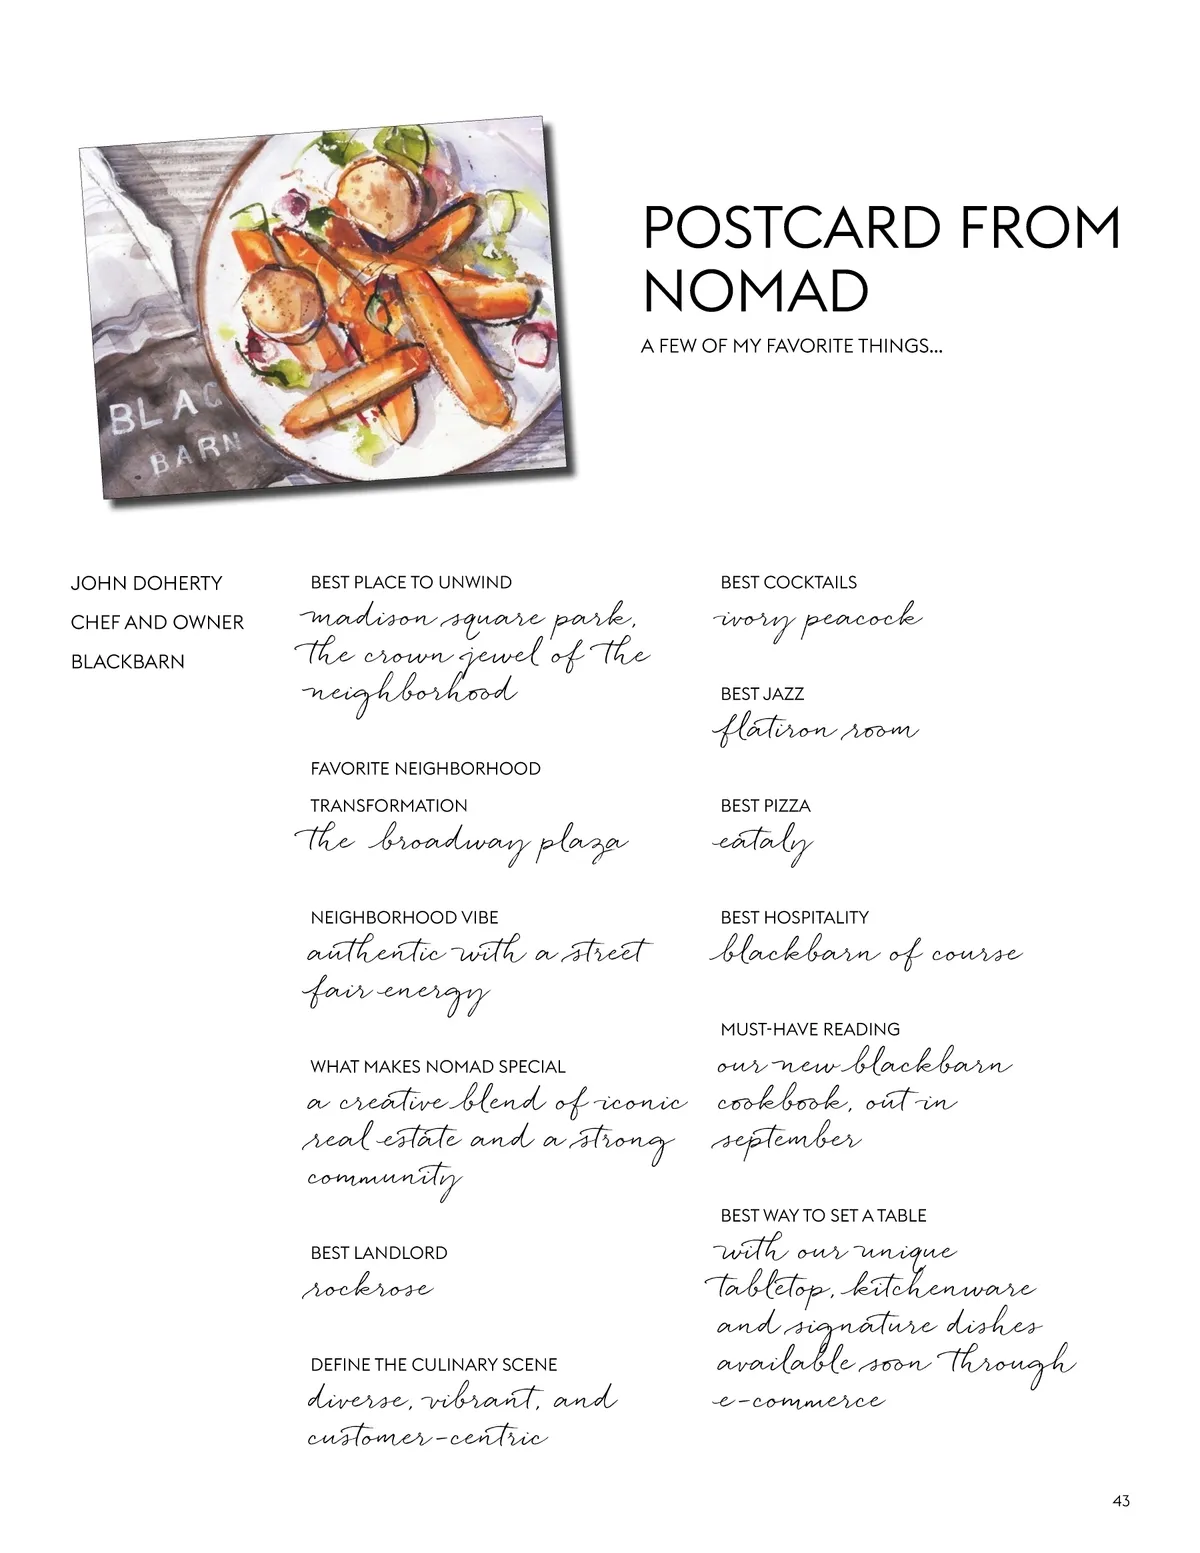 BLAC
BARN
POSTCARD FROM
NOMAD
A FEW OF MY FAVORITE THINGS...
JOHN DOHERTY
CHEF AND OWNER
BLACKBARN
BEST PLACE TO UNWIND
madison square park,
the crown jewel of the
neighborhood
FAVORITE NEIGHBORHOOD
TRANSFORMATION
the broadway plaza
NEIGHBORHOOD VIBE
authentic with a street
fair energy
WHAT MAKES NOMAD SPECIAL
a creative blend of iconic
real estate and a strong
community
BEST LANDLORD
rockrose
DEFINE THE CULINARY SCENE
diverse, vibrant, and
customer-centric
BEST COCKTAILS
ivory peacock
BEST JAZZ
flatiron room
BEST PIZZA
eataly
BEST HOSPITALITY
blackbarn of course
MUST-HAVE READING
our new blackbarn
cookbook, out in
september
BEST WAY TO SET A TABLE
with our unique
tabletop, kitchenware
and signature dishes
available soon through
e-commerce
43